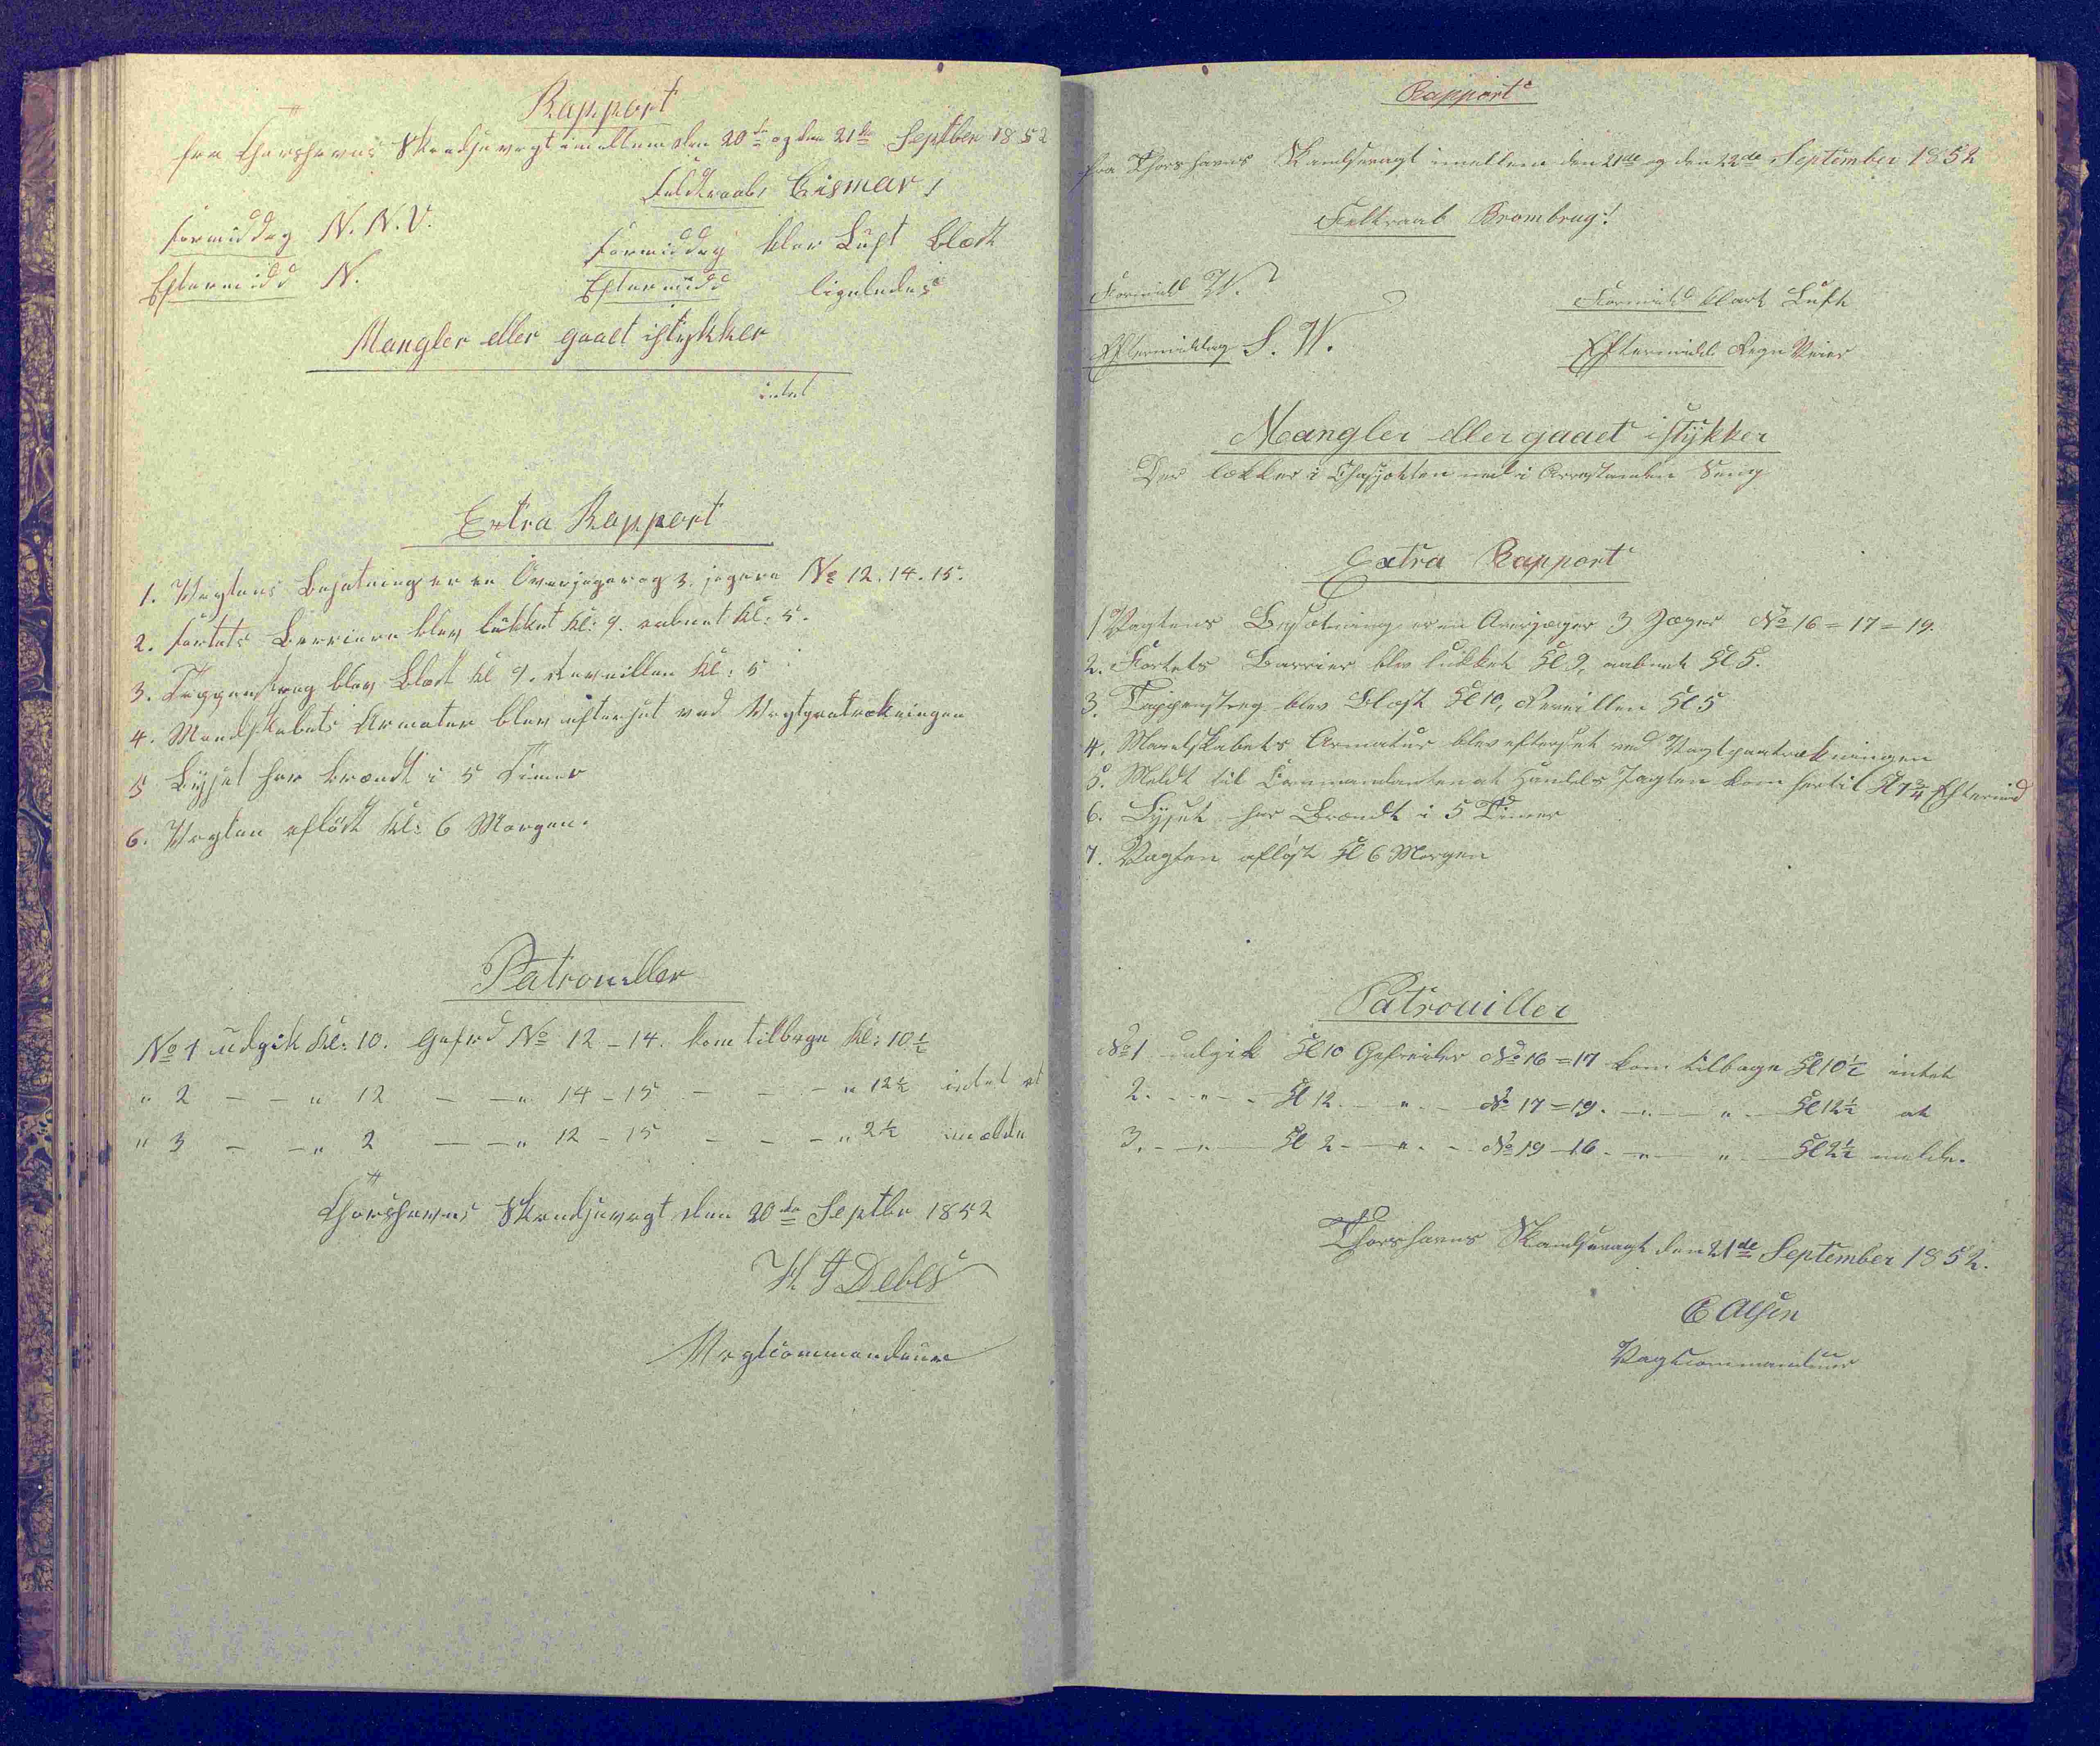 Rapport
fra Thorshavns Skandsevagt imellem den 20de og den 21de Septbr 1852
Feldtraab, Cismar,
Formiddag N. N. V.
Formiddag klar Luft Blæst
Eftermidd N.
Eftermidd ligeledes
Mangler eller gaaet istykker
intet
Extra Rapport
1. Vagtens Besætning er en Overjæger og 3. jægere No 12. 14. 15.
2. Fortets Barriere blev lukket Kl: 9. aabnet Kl: 5.
3. Tappenstreg blev Blæst Kl 9. Reveillen Kl: 5
4. Mandskabets Armatur blev efterset ved Vagtparatrækningen
5 Lyset har brændt i 5 Timer
6. Vagten afløst Kl: 6 Morgen.
Patrouiller
No 1 udgik Kl: 10. Gefrd No 12 - 14. kom tilbage Kl: 10½
" 2 - - " 12 - - " 14 - 15 - - - " 12½ intet at
" 3 - - " 2 - - " 12 - 15 - - - " 2½ melde
Thorshavns Skandsevagt, den 20de Septbr 1852
H J Debes
Vagtcommandeur
Rapport
fra Thorshavns Skandsevagt imellem den 21de og den 22de September 1852
Feltraab Brombrug!
Formidd W.
Formidd klart Luft
Eftermiddag S. W.
Eftermidd Regn Veier
Mangler eller gaaet istykker
Der lækker i ned i Arrestanten Seng
Extra Rapport
1 Vagtens Besætning er en Overjæger 3 Jæger No 16 = 17 = 19.
2. Fortets Barrier blev lukket Kl 9, aabnet Kl 5.
3. Tappenstreg blev Blæst Kl 10, Reveillen Kl 5
4. Mandskabets Armatur blev efterset ved Vagtparatrækningen
5. Meldt til Commandanten at Handels Jagten kom hertil Kl 1¾ Eftermid
6. Lyset har Brændt i 5 Timer
7. Vagten afløst Kl 6 Morgen
Patrouiller
No 1 udgik Kl 10 Gefreider No 16 = 17 kom tilbage Kl 10½ intet
2. - " - Kl 12 - " - No 17 = 19. - " - " - Kl 12½ at
3. - " - Kl 2 - " - No 19 - 16 - " - " - Kl 2½ melde.
Thorshavns Skandsevagt den 21de September 1852.
C Olsen
Vagtcommandeur